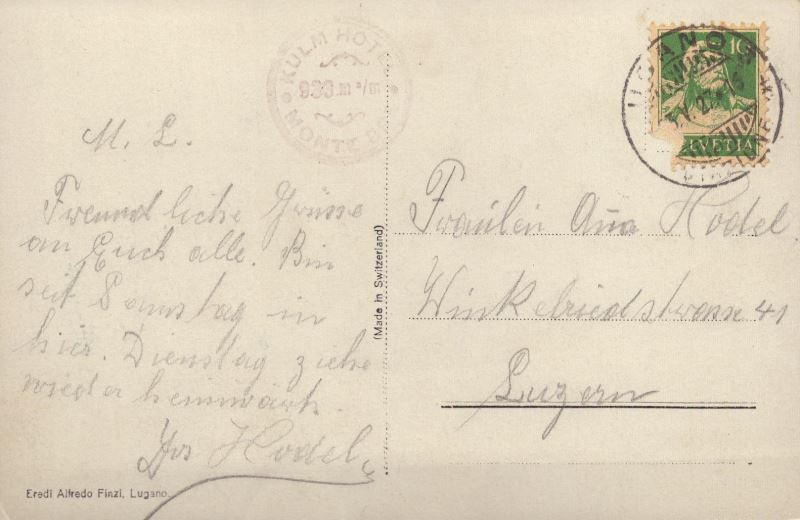 KULM HOTEL
933.m s/m
MONTE B
10
HELVETIA
LUGANO
M. L.
Freundliche Grüsse
an Euch alle. Bin
seit Samstag in
hier. Dienstag ziehe
wieder heimwärts.
Hodel
Eredi Alfredo Finzi, Lugano.
(Made in Switzerland)
Fräulein Anna Hodel
Winkelriedstrasse 41
Luzern